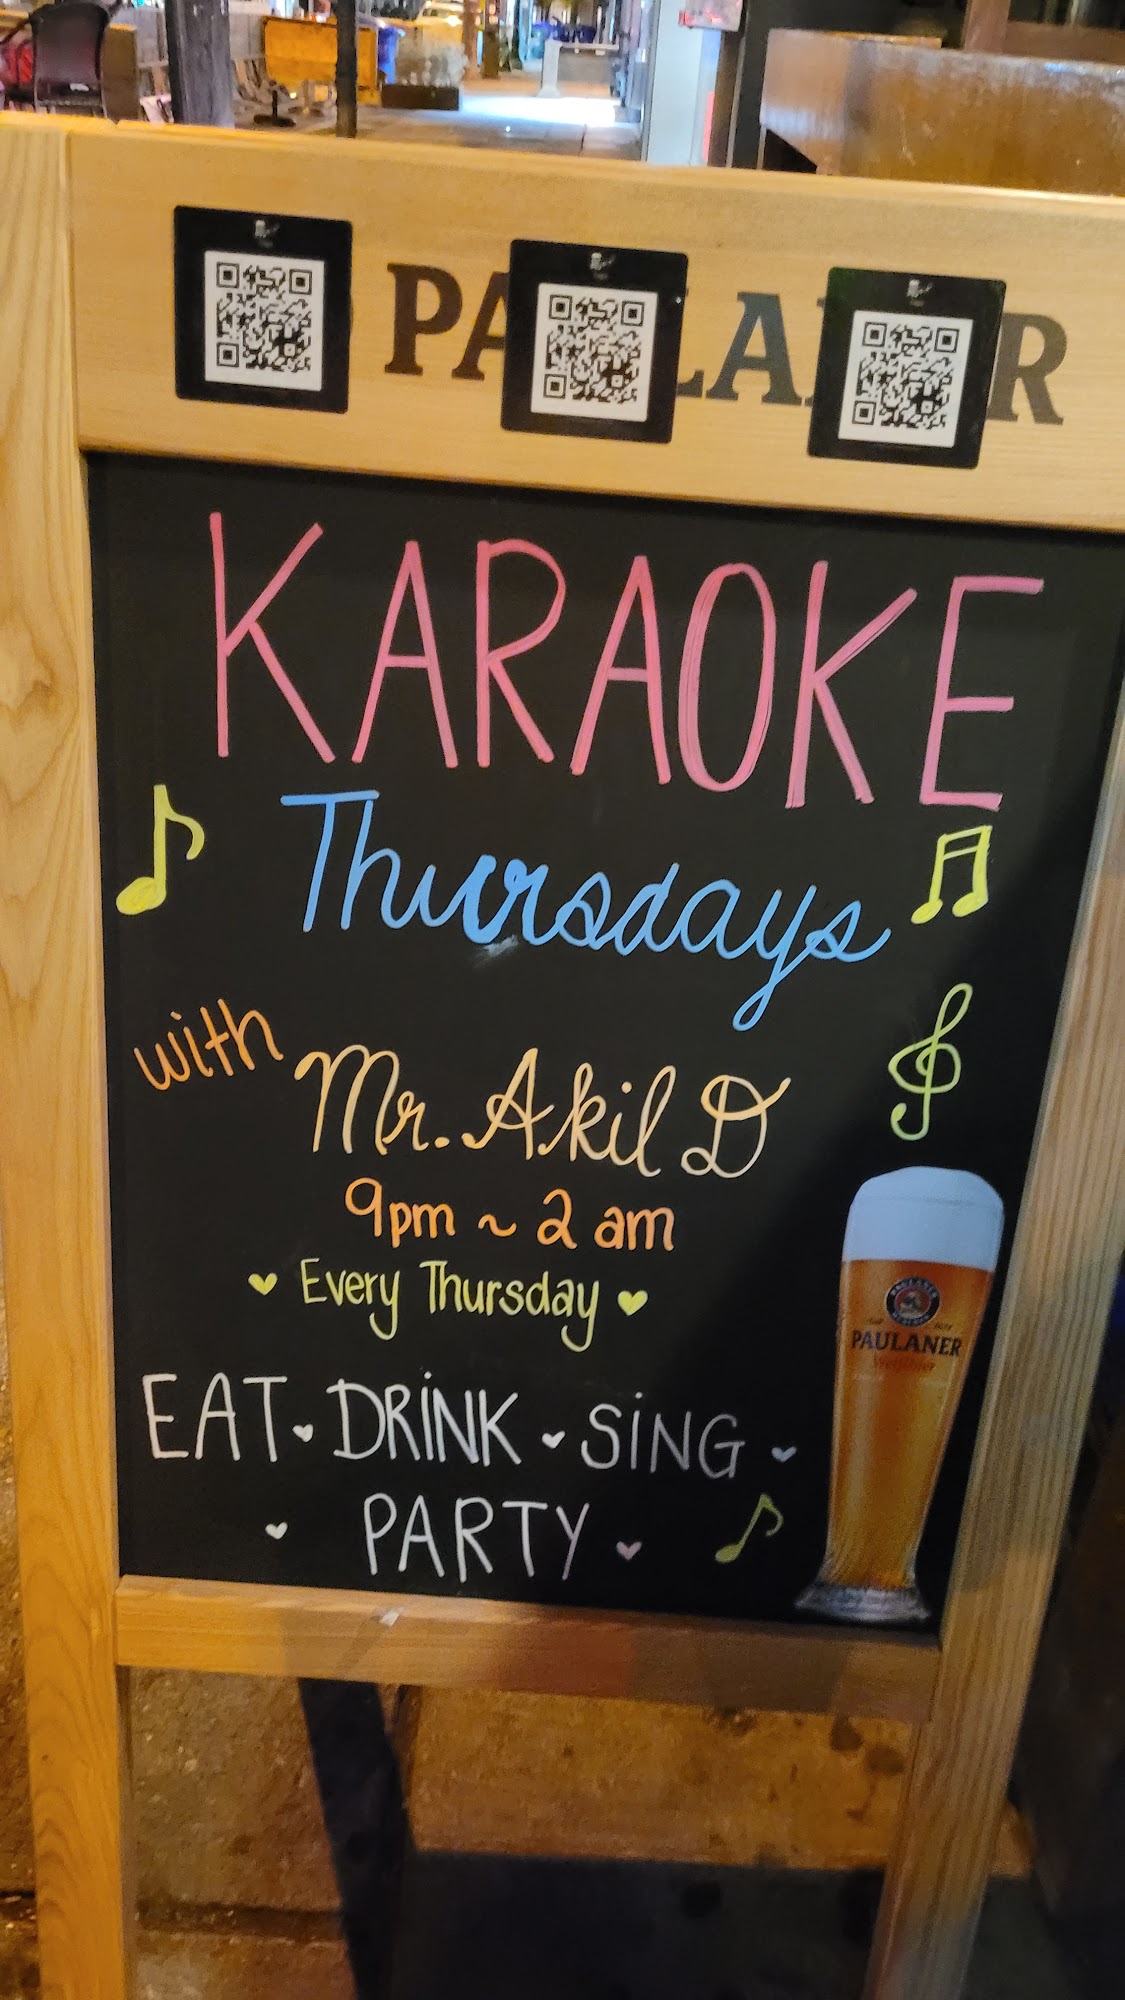 PAULANER
KARAOKE
Thursdays
with
Mr. Akil D
9pm ~ 2 am
Every Thursday
EAT • DRINK • SING
PARTY
PAULANER
Weißbier